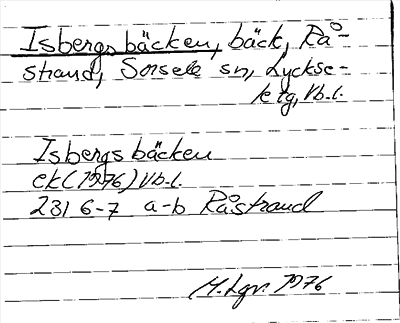 Isbergsbäcken, bäck, Rå-
strand, Sorsele sn, Lycksе-
le tg, Vb.l.
Isbergsbäcken
ek (1976) Vb.l.
231 6-7 a-b Råstrand
M. Lgr. 1976